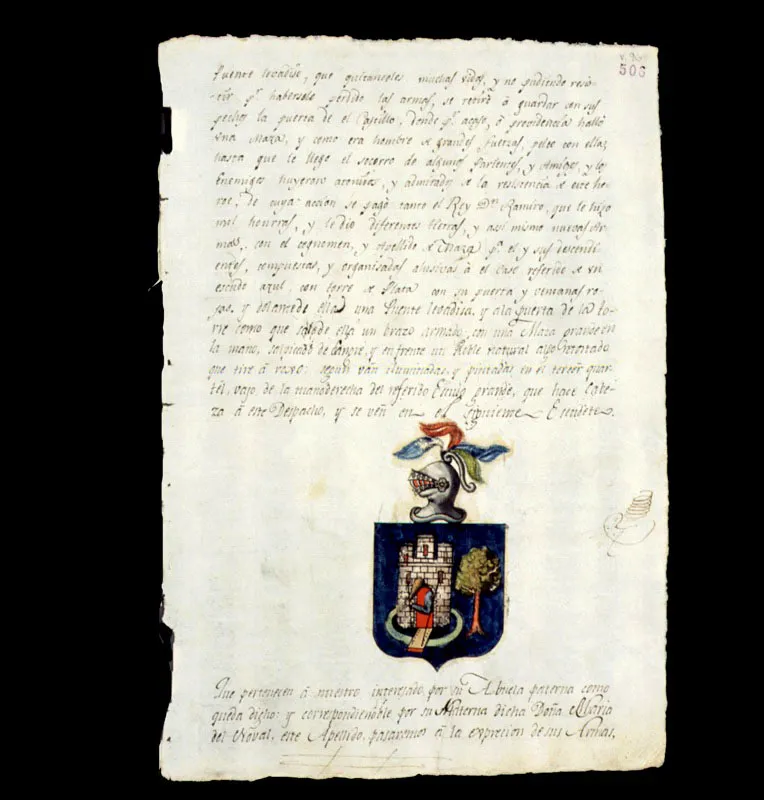 506
Puente levadisa, que quitandoles muchas vidas, y no pudiendo resis-
tir pr. habersele perdido las armas, se retiró á guardar con sus
pechos la puerta de el Castillo, donde pr. acaso, ó providencia halló
una Maza, y como era hombre de grandes fuerzas, peleo con ellas
hasta que le llego el socorro de algunos Parientes, y Amigos, y los
Enemigos huyeron atonitos, y admirados de la resistencia de este he-
roe, de cuya accion se pagó tanto el Rey Dn. Ramiro, que le hizo
mil honrras, y le dio diferentes tierras, y assi mismo nuevas Ar-
mas, con el cognomen, y Apellido de Maza pa. el y sus descendi-
entes, compuestas, y organisadas alusivas á el caso referido de un
escudo azul, con torre de Plata con su puerta y ventanas ro-
jas, y delante de ella una Puente levadisa, y a la puerta de la to-
rre como que sale de ella un brazo armado con una Maza grande en
la mano, salpicado de sangre, y en frente un Roble natural
que tire á roxo: segun ván iluminadas, y pintadas en el tercer quar-
tel, vajo de la mano derecha del referido Escudo grande, que hace Cabe-
za á este Despacho, y se vén en el siguiente Escudete.
Que pertenecen á nuestro interesado por su Abuela paterna como
queda dicho: y correspondiendole por su Materna dicha Doña Maria
del Noval, este Apellido, pasaremos á la exprecion de sus Armas.